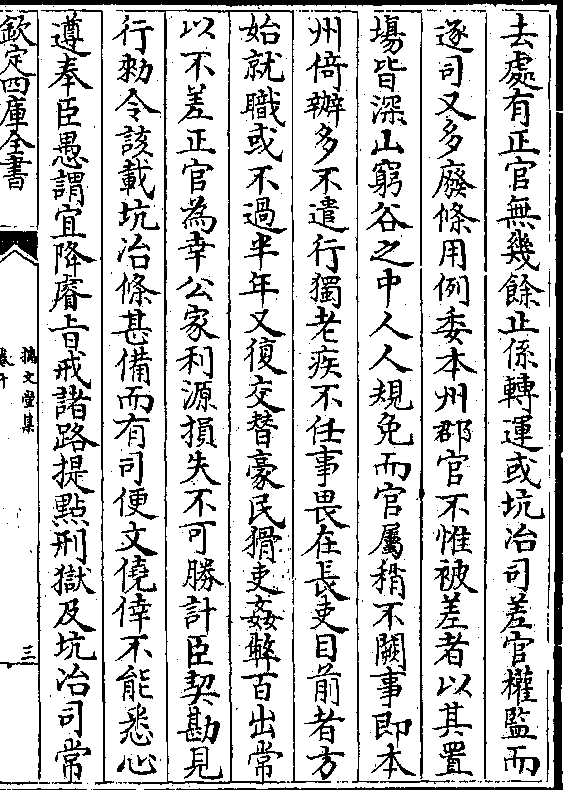 去處有正官無幾餘止係轉運或坑冶司差官權監而
逐司又多廢條用例委本州郡官不惟被差者以其置
塲皆深山窮谷之中人人規免而官屬稍不闕事即本
州倚辦多不遣行獨老疾不任事畏在長吏目前者方
始就職或不過半年又復交替豪民猾吏姦弊百出常
以不差正官為幸公家利源損失不可勝計臣契勘見
行勑令該載坑冶條甚備而有司便文僥倖不能悉心
遵奉臣愚謂宜降睿㫖戒諸路提點刑獄及坑冶司常
欽定四庫全書
摛文堂集
三